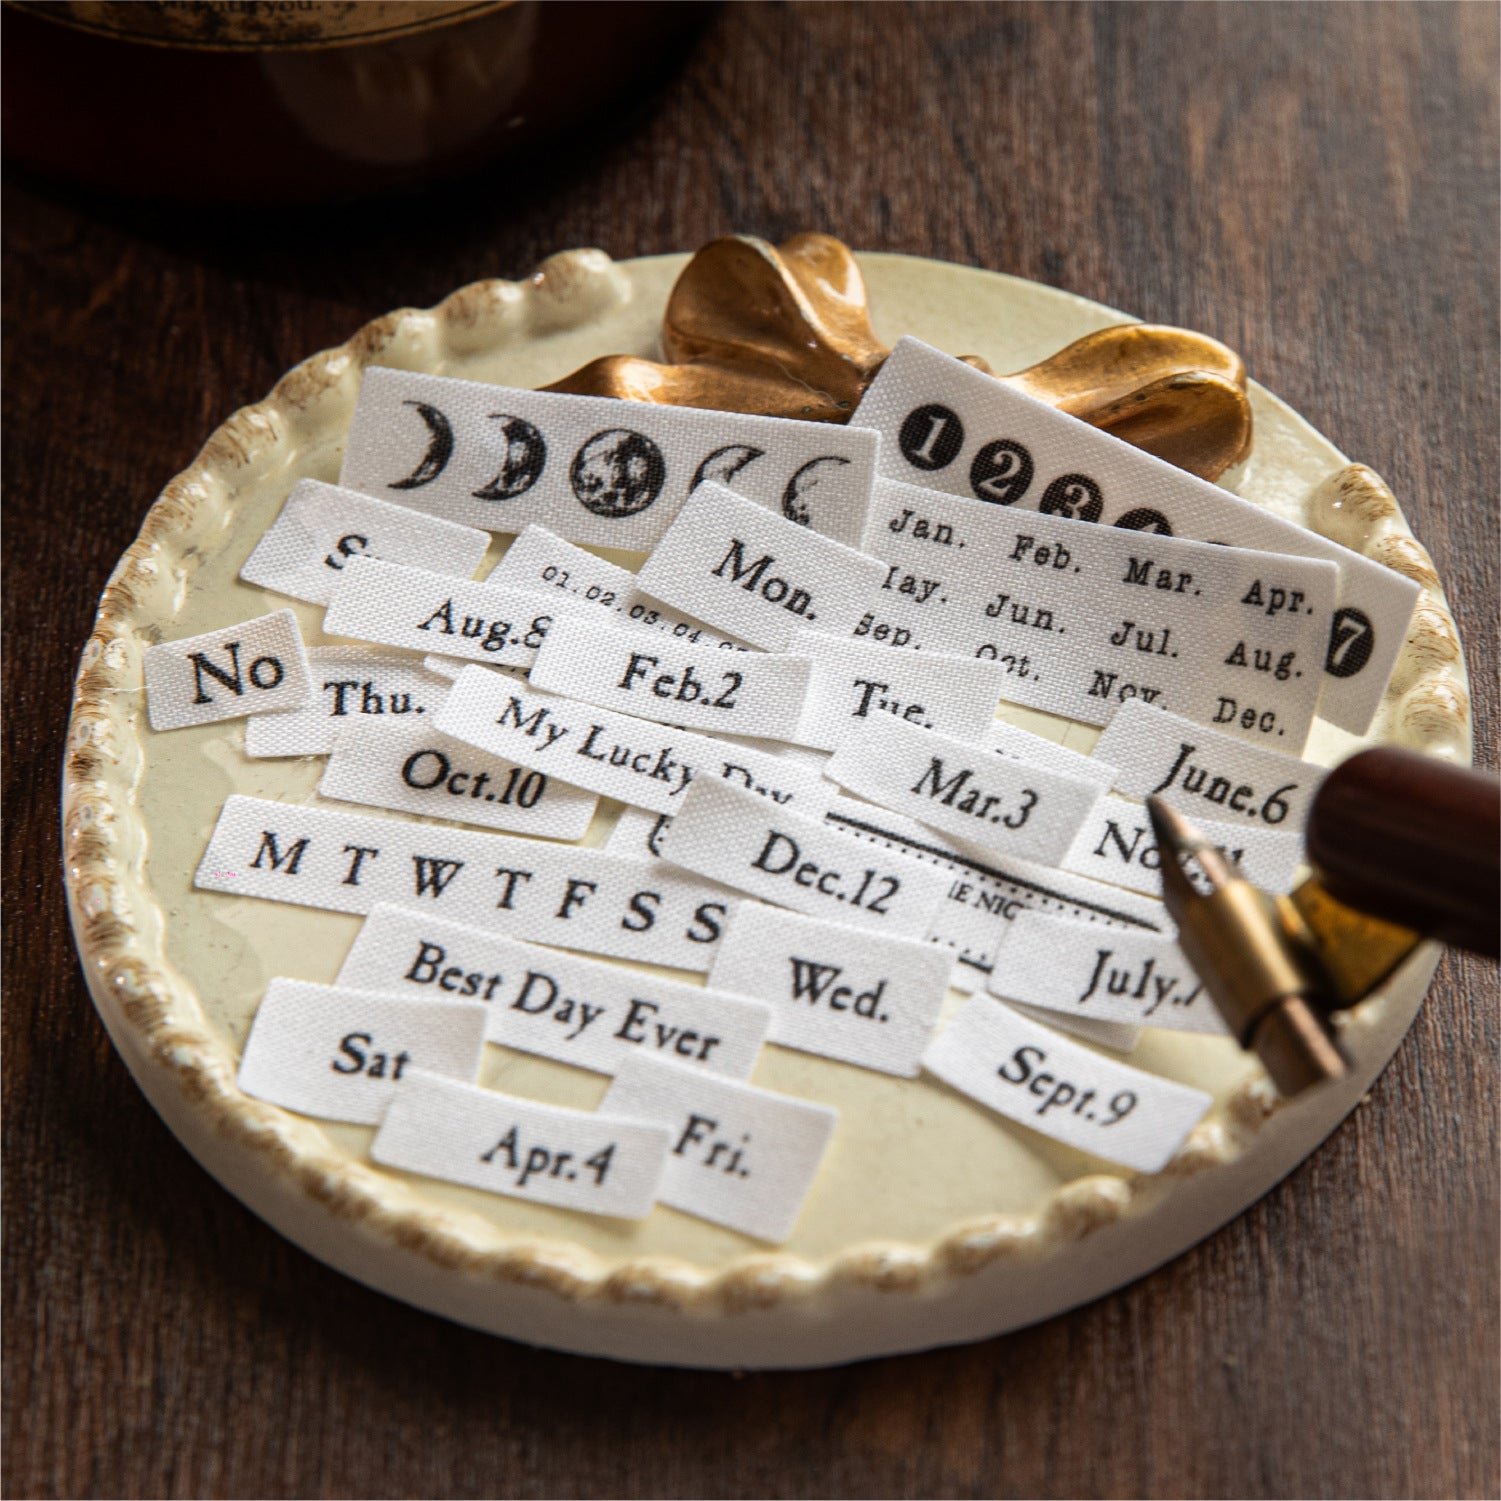 with you.
1 2 3 4
7
Jan. Feb. Mar. Apr.
Jun. Jul. Aug.
Sep. Oct. Nov. Dec.
Mon.
01.02.03.04.
Aug.8
No
Feb.2
Thu.
Tue.
My Lucky Day
June.6
Oct.10
Mar.3
M T W T F S S
Dec.12
July.7
Best Day Ever
Wed.
Sat
Sept.9
Apr.4
Fri.